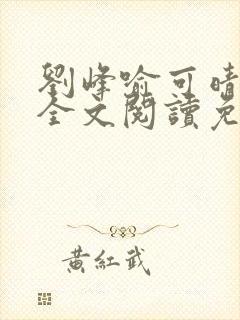 劉峰喻可晴
全文閱讀免
黃紅武